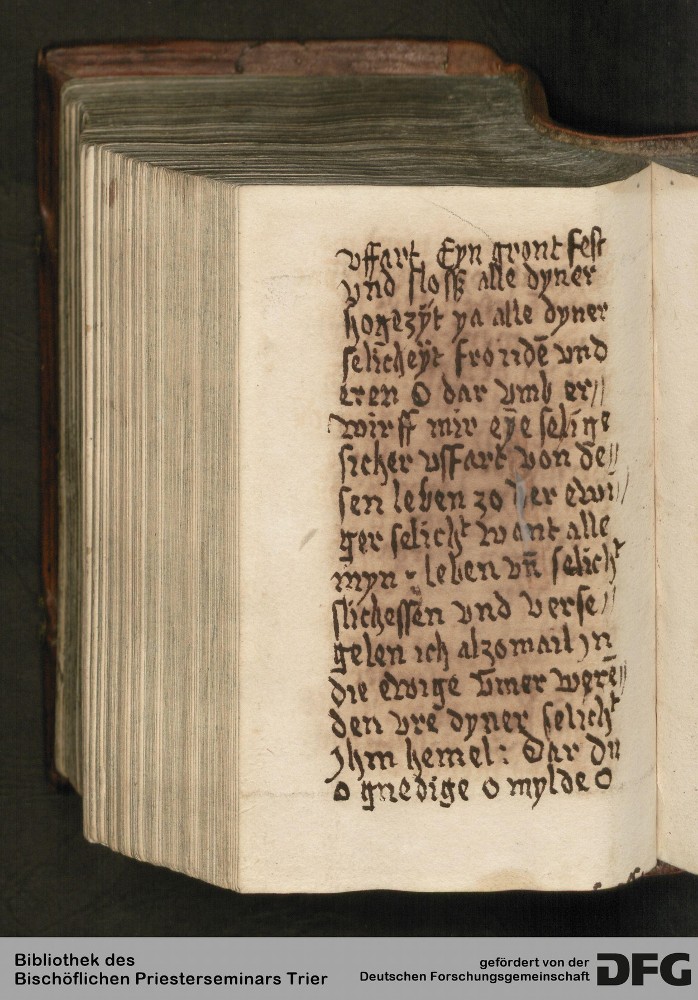 vffart Eyn gront fest
vnd sloss alle dyner
hogezÿt ya alle dyner
selicheÿt froiidē vnd
eren O dar vmb er//
wirff mir eyē selige
sicher vffart von de//
sen leben zo der ewi//
ger selicht want alle
myn leben vn̄ selicht
slichessen vnd verse//
gelen ich alzomail jn
die ewige v̄mer werē//
den vrē dyner selicht
jhm hemel: Dar du
o gnedige o mylde o
Bibliothek des
Bischöflichen Priesterseminars Trier
gefördert von der
Deutschen Forschungsgemeinschaft
DFG